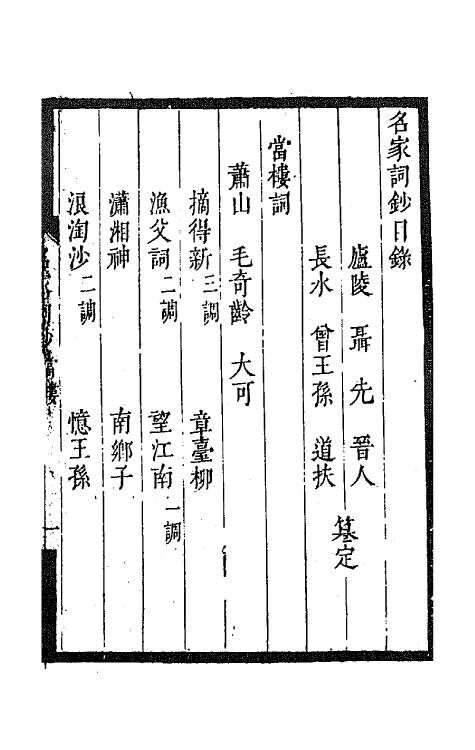 名家詞鈔目錄
廬陵 聶先 晉人
長水 曾王孫 道扶
篹定
當樓詞
蕭山 毛奇齡 大可
摘得新 三調 章臺柳
漁父詞 二調 望江南 一調
瀟湘神 南鄉子
浪淘沙 二調 憶王孫